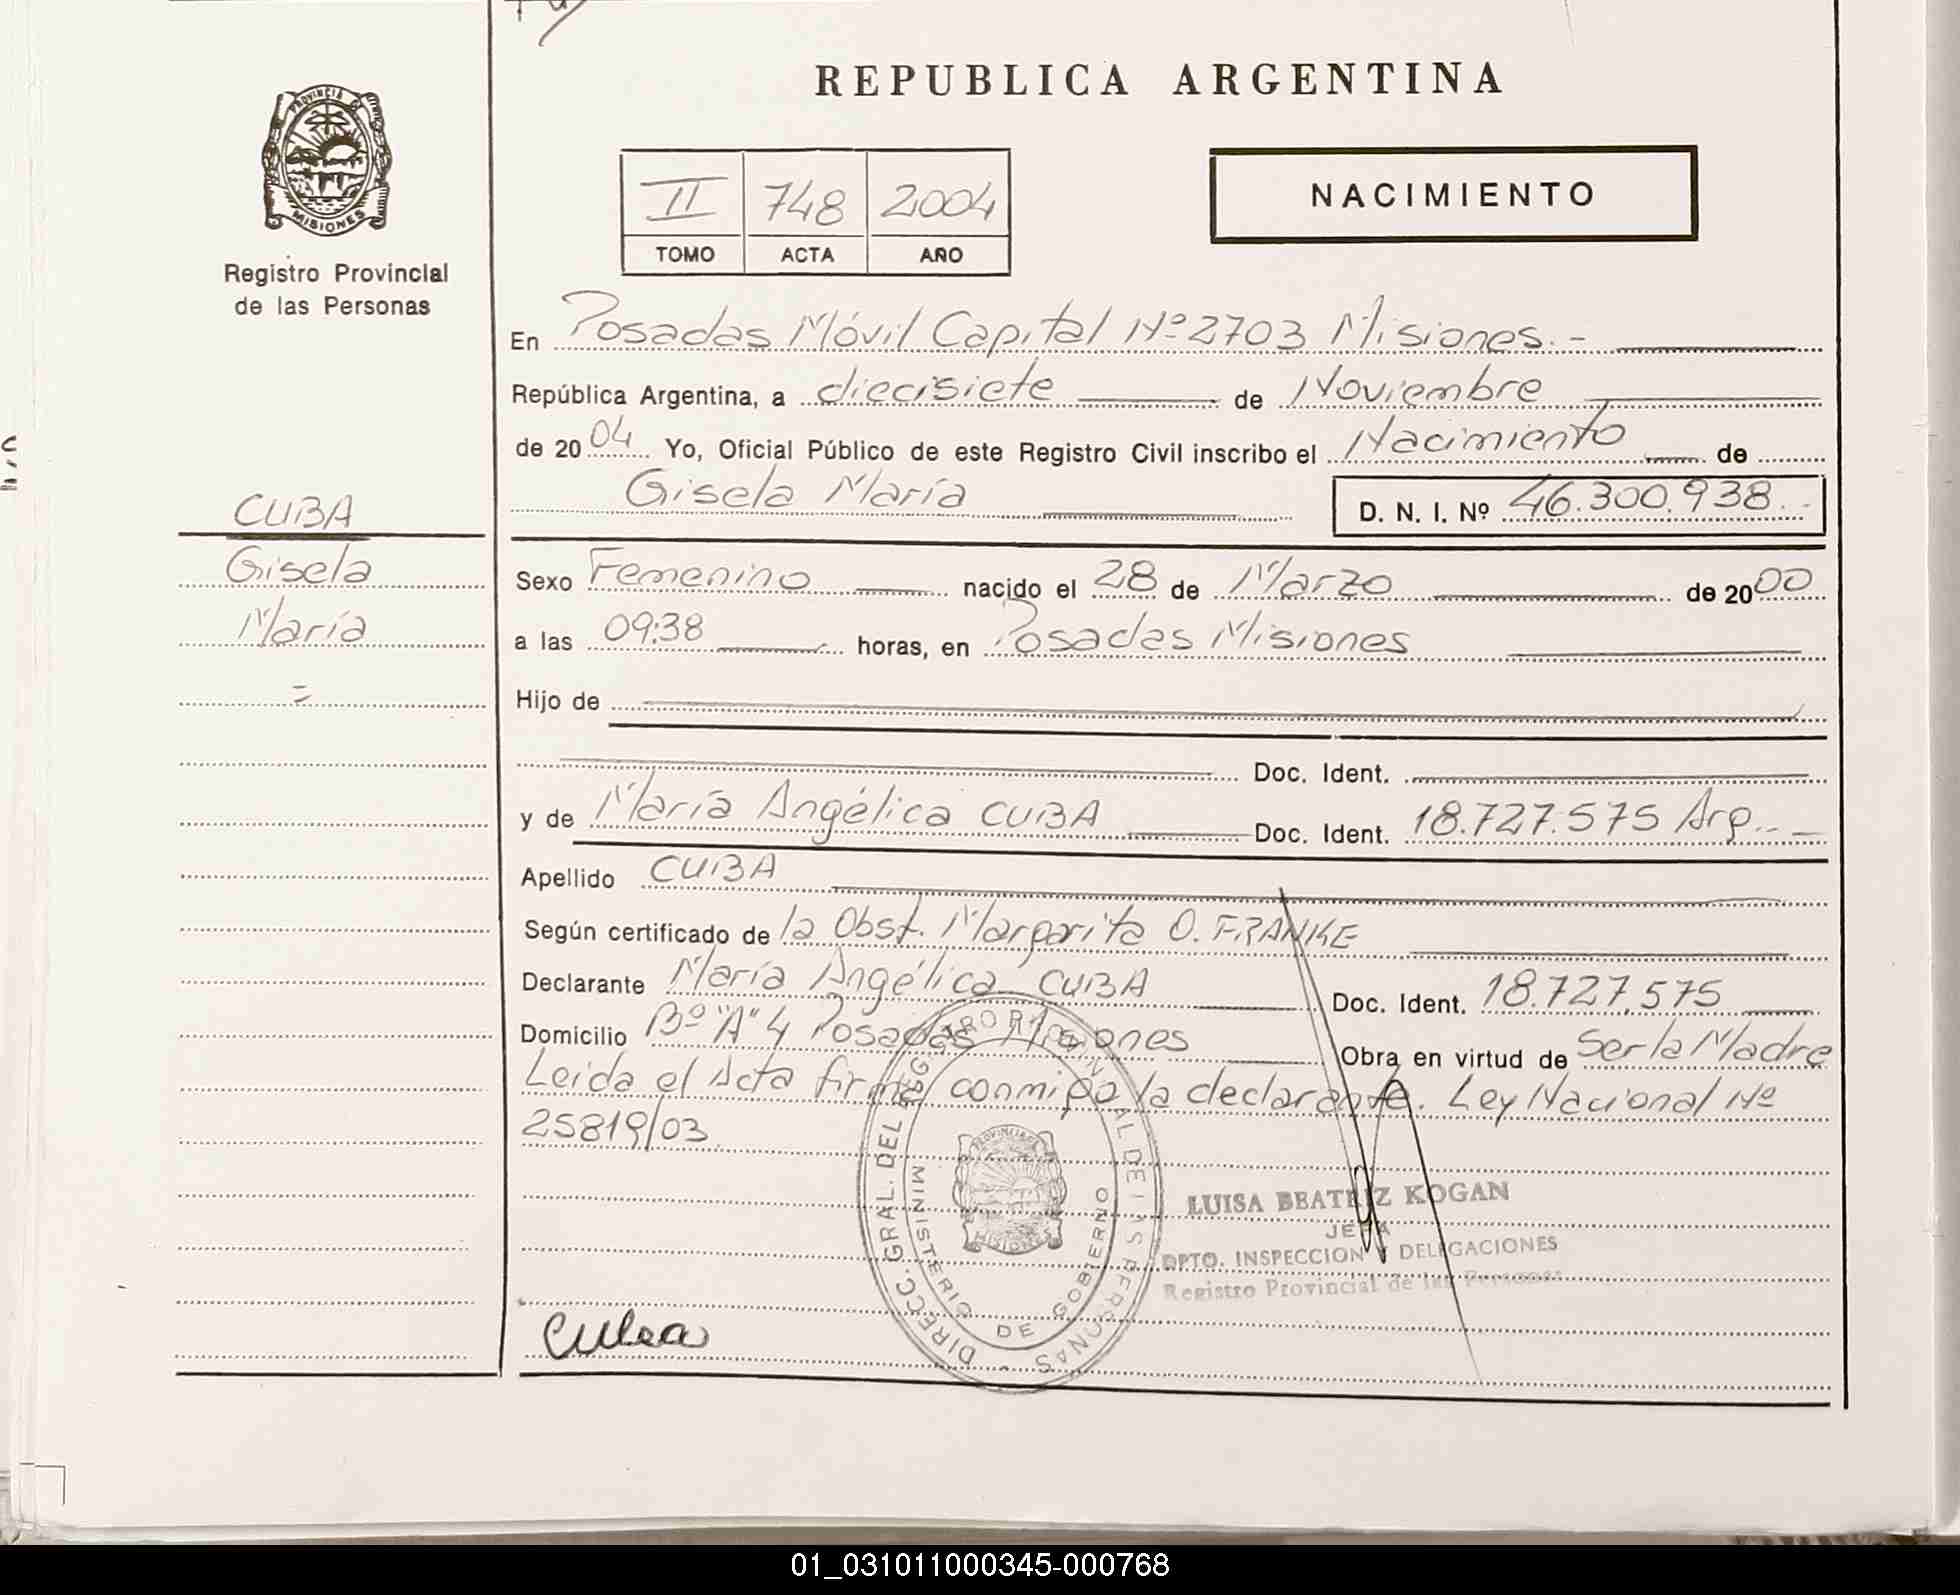 REPUBLICA ARGENTINA
PROVINCIA
MISIONES
Registro Provincial
de las Personas
II 748 2004
TOMO ACTA AÑO
NACIMIENTO
En Posadas Móvil Capital Nº 2703 Misiones.-
República Argentina, a diecisiete de Noviembre
de 2004 Yo, Oficial Público de este Registro Civil inscribo el Nacimiento de
Gisela María D. N. I. Nº 46.300.938.-
CUBA
Gisela
María
=
Sexo Femenino nacido el 28 de Marzo de 2000
a las 09:38 horas, en Posadas Misiones
Hijo de
Doc. Ident.
y de María Angélica CUBA Doc. Ident. 18.727.575 Arg..-
Apellido CUBA
Según certificado de la Obst. Margarita O. FRANKE
Declarante María Angélica CUBA Doc. Ident. 18.727.575
Domicilio Bº "A" 4 Posadas Misiones Obra en virtud de Ser la Madre
Leida el Acta firma conmigo la declarante. Ley Nacional Nº
25819/03
DIRECC. GRAL. DEL REGISTRO PROVINCIAL DE LAS PERSONAS
MINISTERIO DE GOBIERNO
PROVINCIA
MISIONES
LUISA BEATRIZ KOGAN
JEFA
DPTO. INSPECCION Y DELEGACIONES
Registro Provincial de las Personas
Cuba
01_031011000345-000768